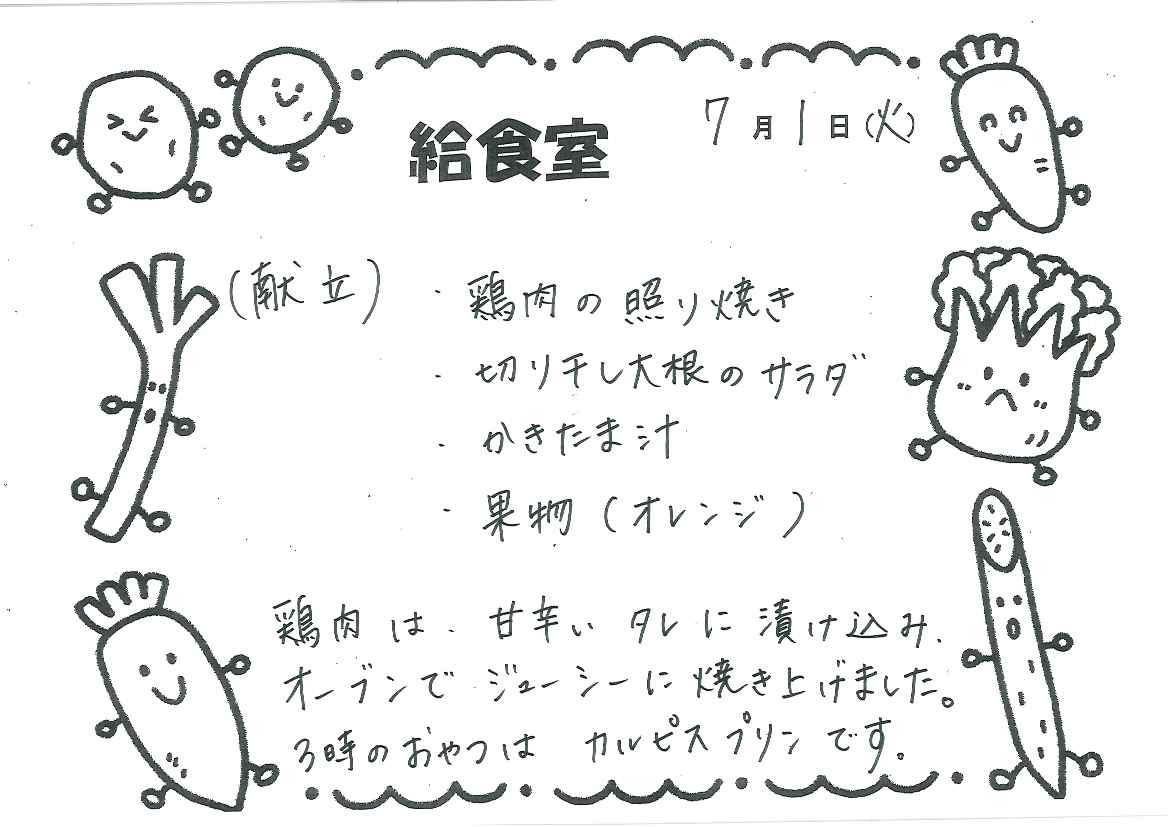 給食室
7月1日(火)
(献立)
・鶏肉の照り焼き
・切り干し大根のサラダ
・かきたま汁
・果物(オレンジ)
鶏肉は、甘辛いタレに漬け込み、
オーブンでジューシーに焼き上げました。
3時のおやつは カルピスプリンです。